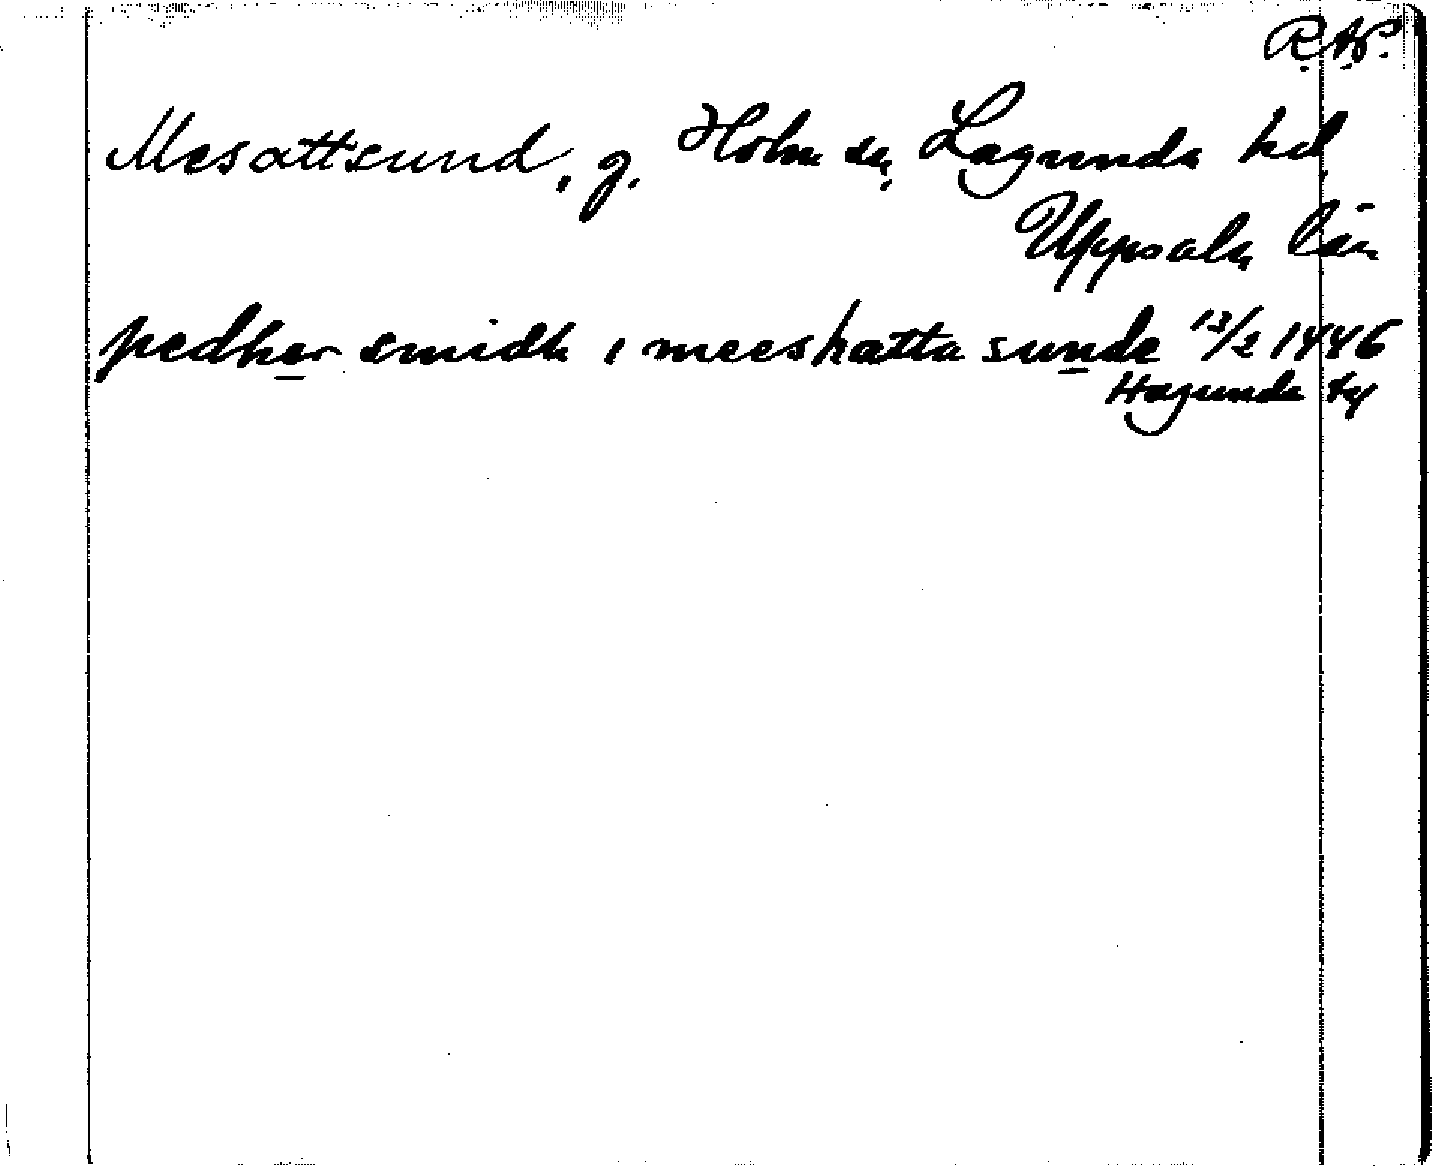 Mesattsund, g. Holm sn, Lagunda hd,
Uppsala län
pedher smidh i meeshatta sunde 13/2 1446
Hagunda